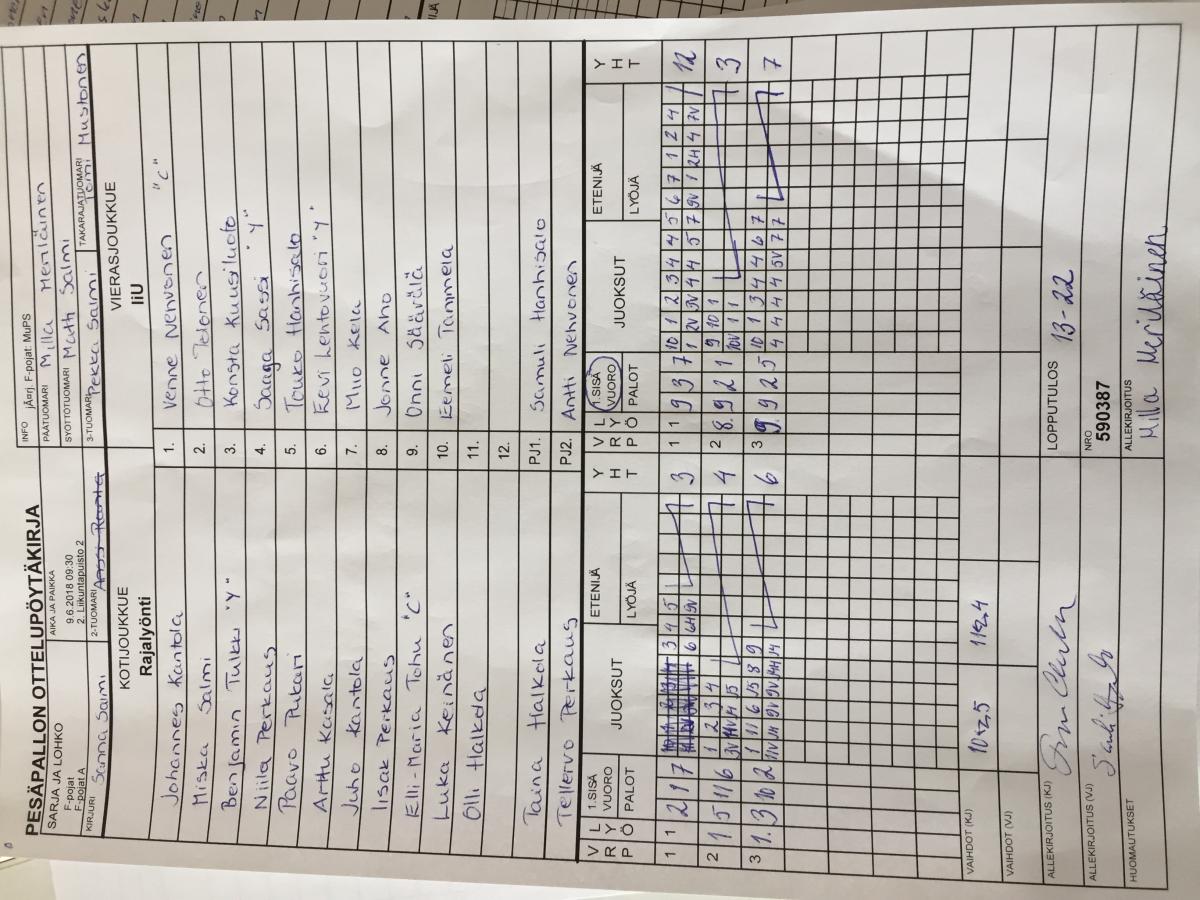 PESÄPALLON OTTELUPÖYTÄKIRJA
SARJA JA LOHKO
F-pojat
F-pojat A
AIKA JA PAIKKA
9.6.2018 09:30
2. Liikuntapuisto 2
INFO jÃ¤rj. F-pojat: MuPS
PÄÄTUOMARI Milla Meriläinen
SYÖTTÖTUOMARI Matti Salmi
KIRJURI Sanna Salmi
2-TUOMARI
3-TUOMARI Pekka Salmi
TAKARAJATUOMARI Toini Mustonen
KOTIJOUKKUE
Rajalyönti
VIERASJOUKKUE
IiU
Johannes Kantola 1. Venne Nehvonen "C"
Miska Salmi 2. Otto Pelonen
Benjamin Tulkki "Y" 3. Konsta Kuusiluoto
Niila Perkaus 4. Saaga Sassi "Y"
Paavo Putaari 5. Touko Hanhisalo
Arttu Kaisala 6. Eevi Lehtovuori "Y"
Juho Kantola 7. Miio Kela
Iisak Perkaus 8. Jonne Aho
Elli-Maria Tohu "C" 9. Onni Säävälä
Luka Keinänen 10. Eemeli Tammela
Olli Halkola 11.
12.
Taina Halkola PJ1. Samuli Hanhisalo
Tellervo Perkaus PJ2. Antti Nehvonen
V R P L Y Ö 1.SISÄ VUORO PALOT JUOKSUT ETENIJÄ LYÖJÄ Y H T
V R P L Y Ö 1.SISÄ VUORO PALOT JUOKSUT ETENIJÄ LYÖJÄ Y H T
1 1 2 1 7 3 4 5 3
6 6H 9V
1 1 9 3 7 10 1 2 3 4 4 5 6 7 1 2 4 12
1 2V 3V 4 4 5 7 9V 1 2H 4 7V
2 1 5 11 6 1 2 3 4 4
2 8. 9 2 1 9 10 1 3
10V 1 1
3 1. 3 10 2 1 11 6 15 8 9 6
3 9 9 2 5 10 1 3 4 4 6 7 7
4 4 4 4 5V 7 7
VAIHDOT (KJ)
VAIHDOT (VJ)
ALLEKIRJOITUS (KJ)
LOPPUTULOS 13-22
ALLEKIRJOITUS (VJ)
NRO
590387
HUOMAUTUKSET
ALLEKIRJOITUS
Milla Meriläinen